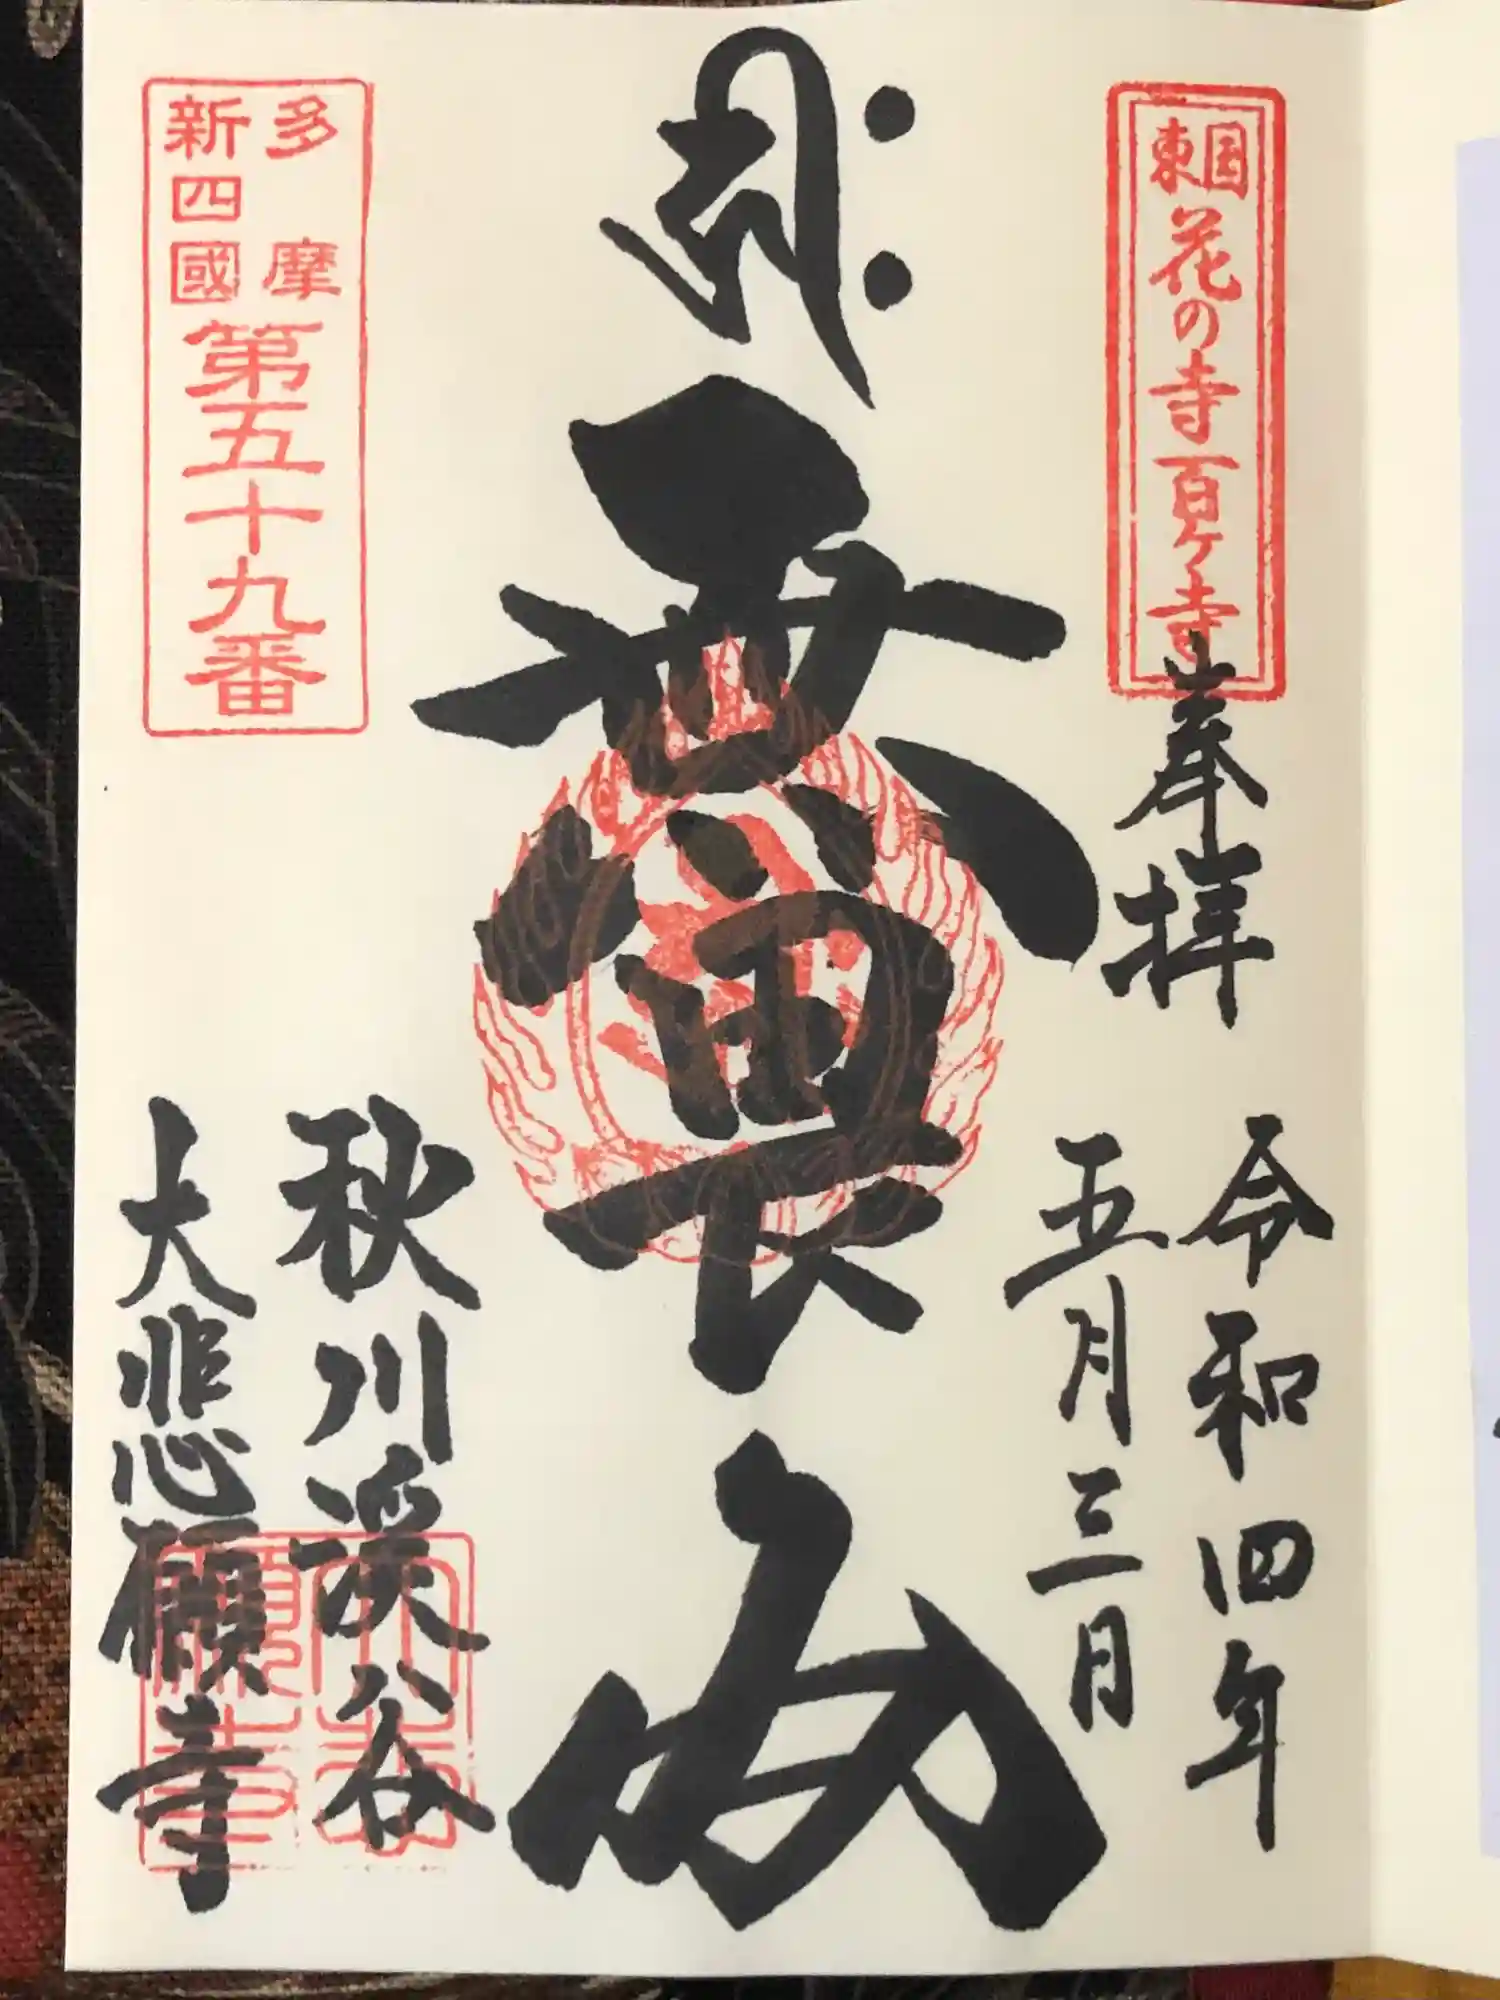 東国花の寺百ヶ寺
奉拝
令和四年
五月三日
無畏
多摩
新四國
第五十九番
秋川渓谷
大悲願寺
大悲願寺